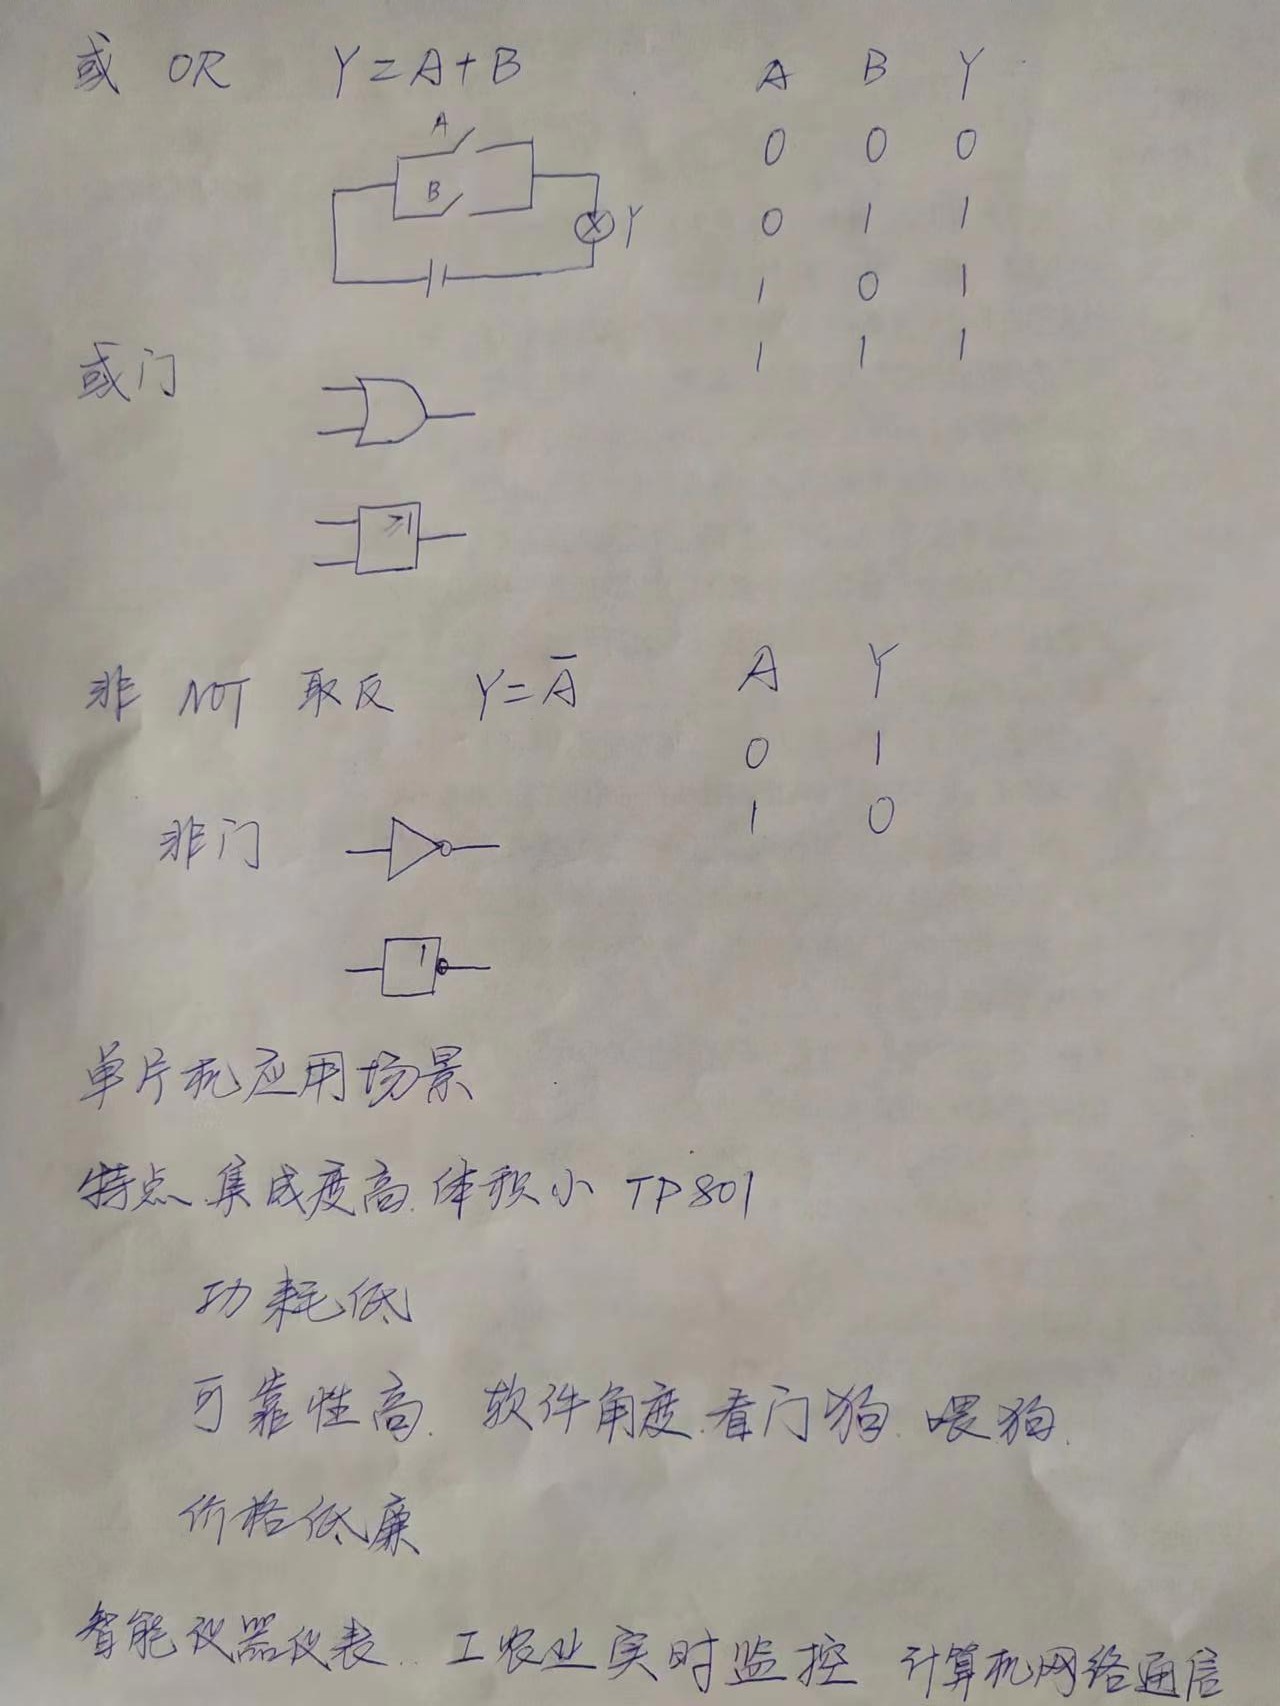 或 OR Y=A+B A B Y
A 0 0 0
B Y 0 1 1
1 0 1
或门 1 1 1
≥1
非 NOT 取反 Y=A̅ A Y
0 1
非门 1 0
1
单片机应用场景
特点.集成度高.体积小 TP801
功耗低
可靠性高. 软件角度.看门狗.喂狗.
价格低廉
智能仪器仪表.. 工农业实时监控 计算机网络通信